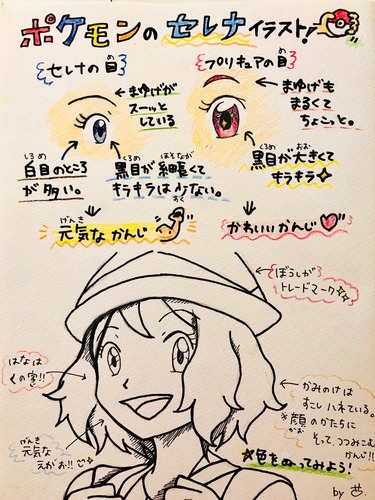 ポケモンの セレナ イラスト!
セレナの目
プリキュアの目
まゆげが
スーッと
している
まゆげも
まるくて
ちょこっと。
しろめ
白目のところ
が多い。
くろめ ほそなが
黒目が細長くて
キラキラは少ない。
すく
くろめ おお
黒目が大きくて
キラキラ
げんき
元気なかんじ
かわいいかんじ
ぼうしが
トレードマーク
はなは
くの字!!
げんき
元気な
えがお!!
かみのけは
すこしハネている。
*顔のかたちに
かお
そって、つつみこむ
かんじ!!
色をぬってみよう!
by